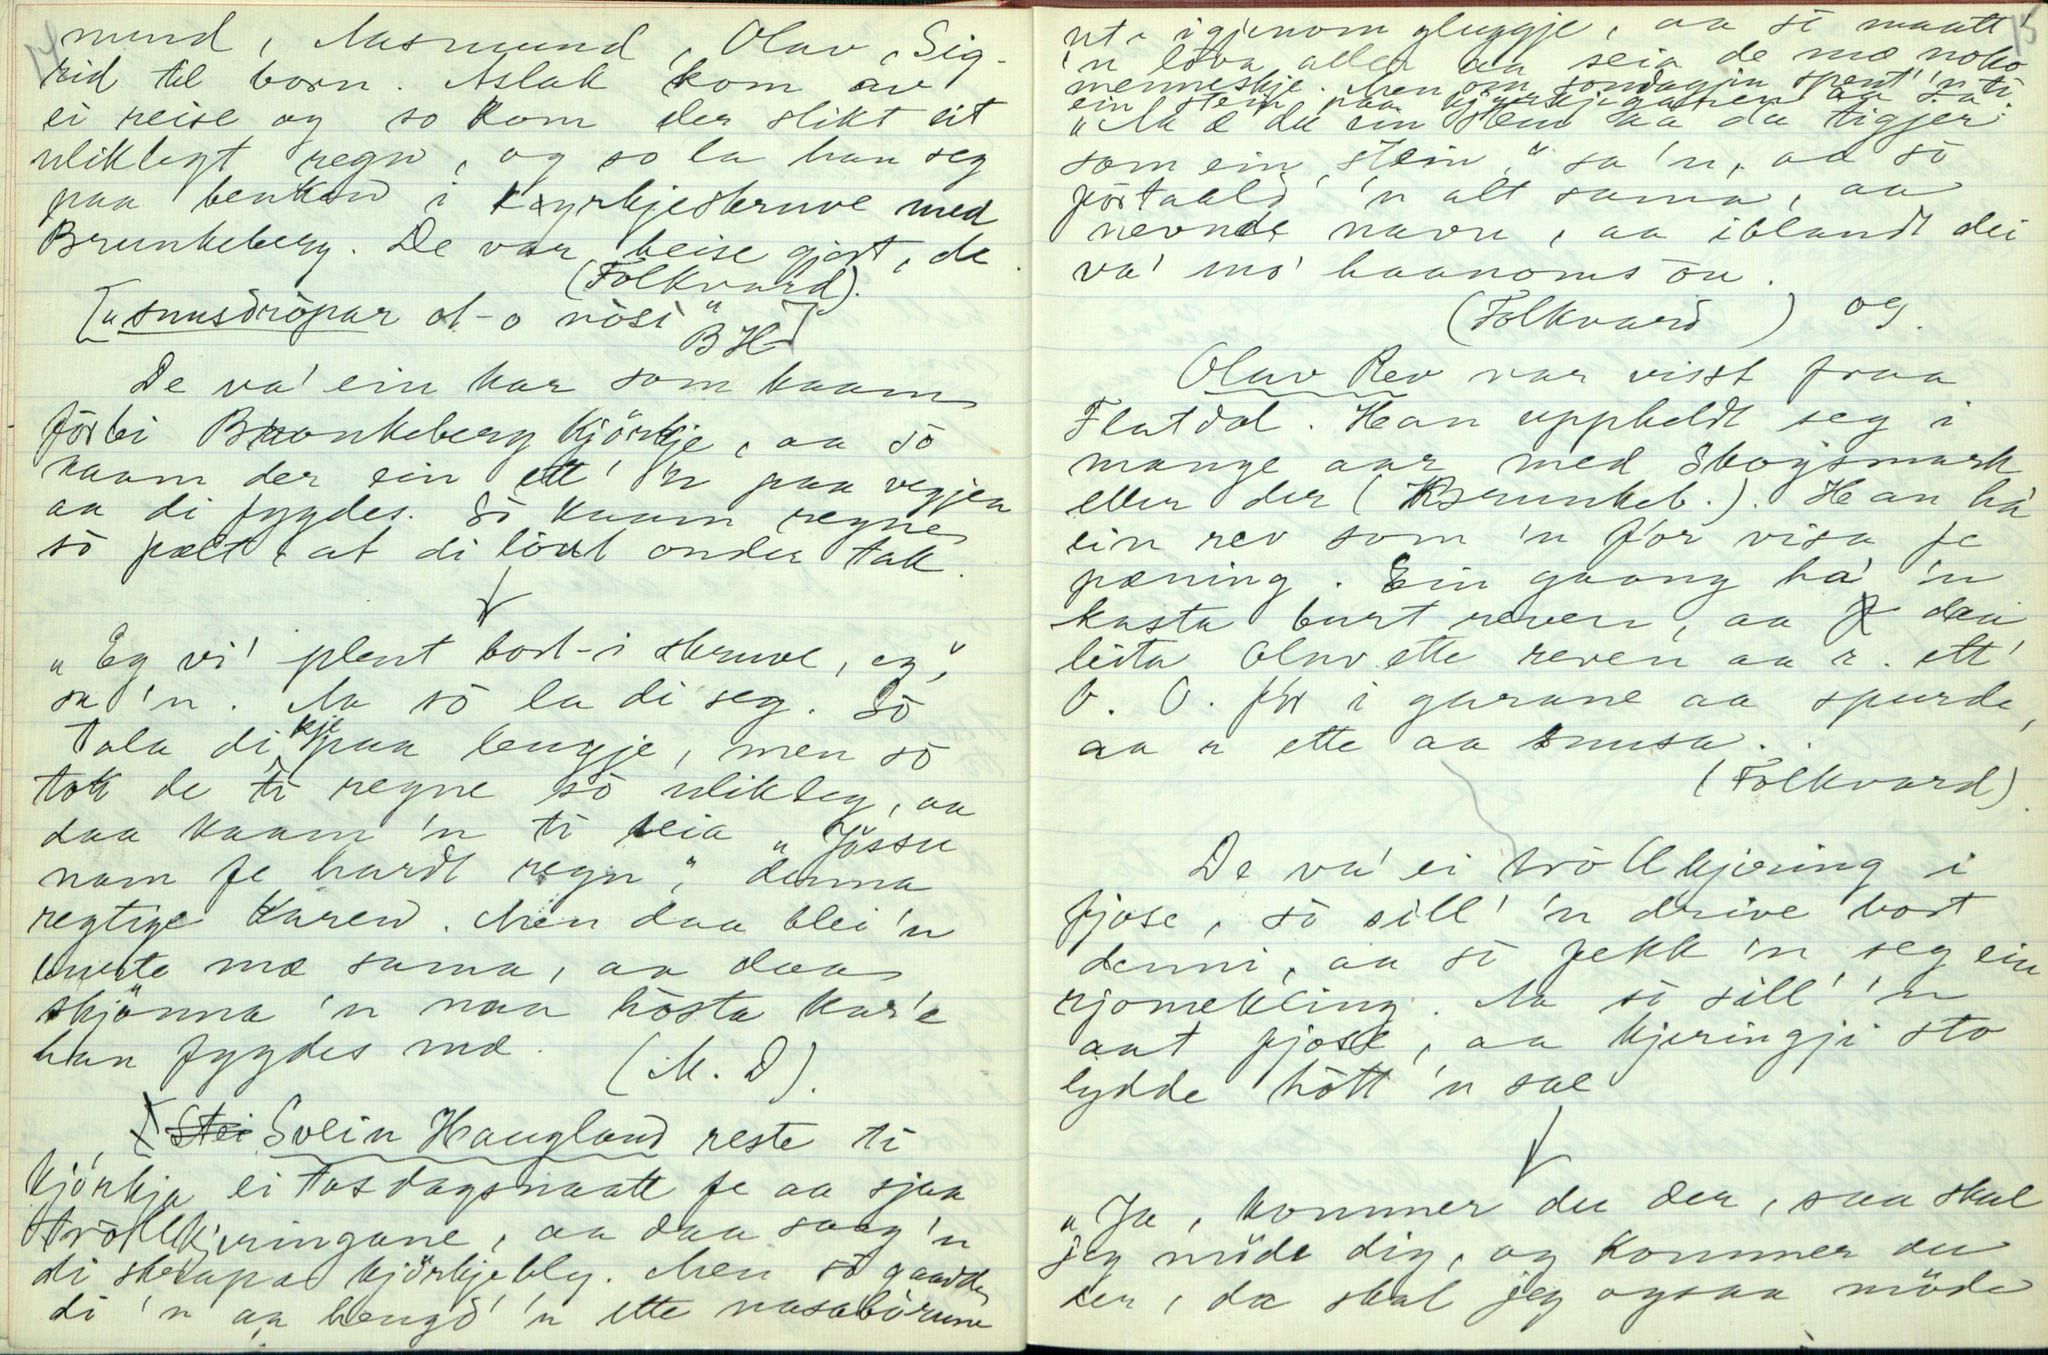 14
mund, Aasmund, Olav, Sig-
rid til born. Aslak kom av
ei reise og so kom der slikt eit
uliklegt regn, og so la han seg
paa benken i kyrkjeskruve med
Brunkeberg. De var beise gjort, de.
(Folkvard).
["snusdröpar ot-o nösi"
BH]
De va' ein kar som kaam
förbi Bronkeberg kjörkje, aa sö
kaam der ein ett' 'n paa vegjen
aa di fygdes. Sö kaam regne
sö pælt, at di löut onder tak.
"Eg vi' plent bort-i skruve, eg,"
sa 'n. Aa sö la di seg. Sö
tala di kje paa lengje, men sö
tok de ti regne sö ulikleg, aa
daa kaam 'n ti seia "Jössu
nam fe hardt regn", denna
regtige karen. Men daa blei 'n
burte mæ sama, aa daa
skjönna 'n naa hösta kar'e
han fygdes mæ. (M. D).
[Stei Svein Haugland reste ti
kjörkja ei tosdagsnaatt fe aa sjaa
tröllkjeringane, aa daa saag 'n
di skrapa kjörkjebly. Men sö gaadde
di 'n aa hengd' 'n ette nasabörune
15
ut-igjenom gluggje, aa sö maatt'
'n lova alder aa seia de mæ noko
menneskje. Men om sondagjen spent' 'n ti
ein stein paa kjyrkjegaren aa sa:
"Aa æ du ein stein saa du tigjer
som ein stein," sa 'n, aa sö
förtaald' 'n alt sama, aa
nevnde navn, aa iblandt dei
va' mo' haanoms ou.
(Folkvard) og.
Olav Rev var visst fraa
Flatdal. Han uppheldt seg i
mange aar med Skogsmark
eller der (Brunkeb.). Han ha'
ein rev som 'n for visa fe
pæning. Ein gaang ha' 'n
kasta burt reven, aa daa
leita Olav ette reven aa r. ett'
O. O. for i garane aa spurde,
aa r ette aa snusa.
(Folkvard).
De va' ei tröllkjering i
fjose, sö sill' 'n drive bort
denni, aa sö fekk 'n seg ein
rjomekling. Aa sö sill' 'n
aat fjose, aa kjeringji sto
lydde hött 'n sae
"Ja, kommer du der, saa skal
jeg möde dig, og kommer du
der, da skal jeg ogsaa möde